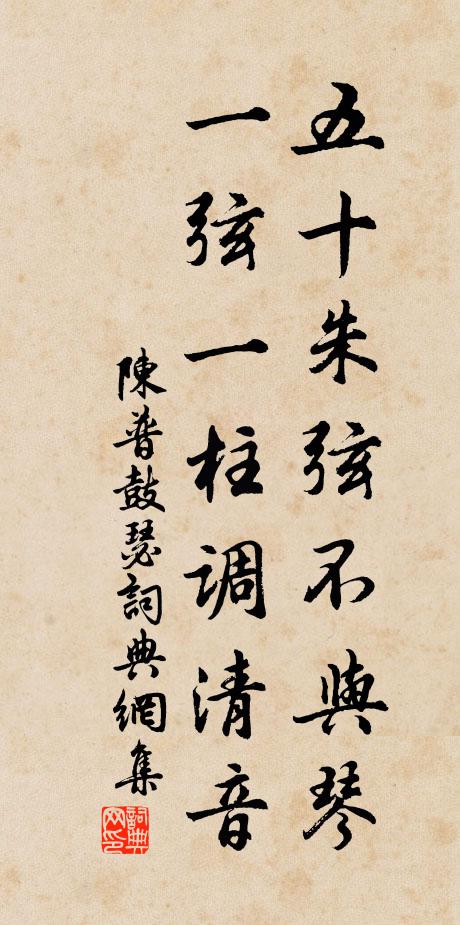 五十朱弦不與琴
一弦一柱调清音
陳普鼓瑟詞典網集
詞典网印